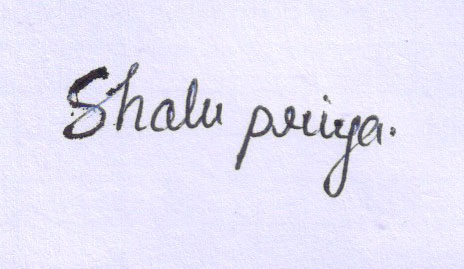 Shalu priya.